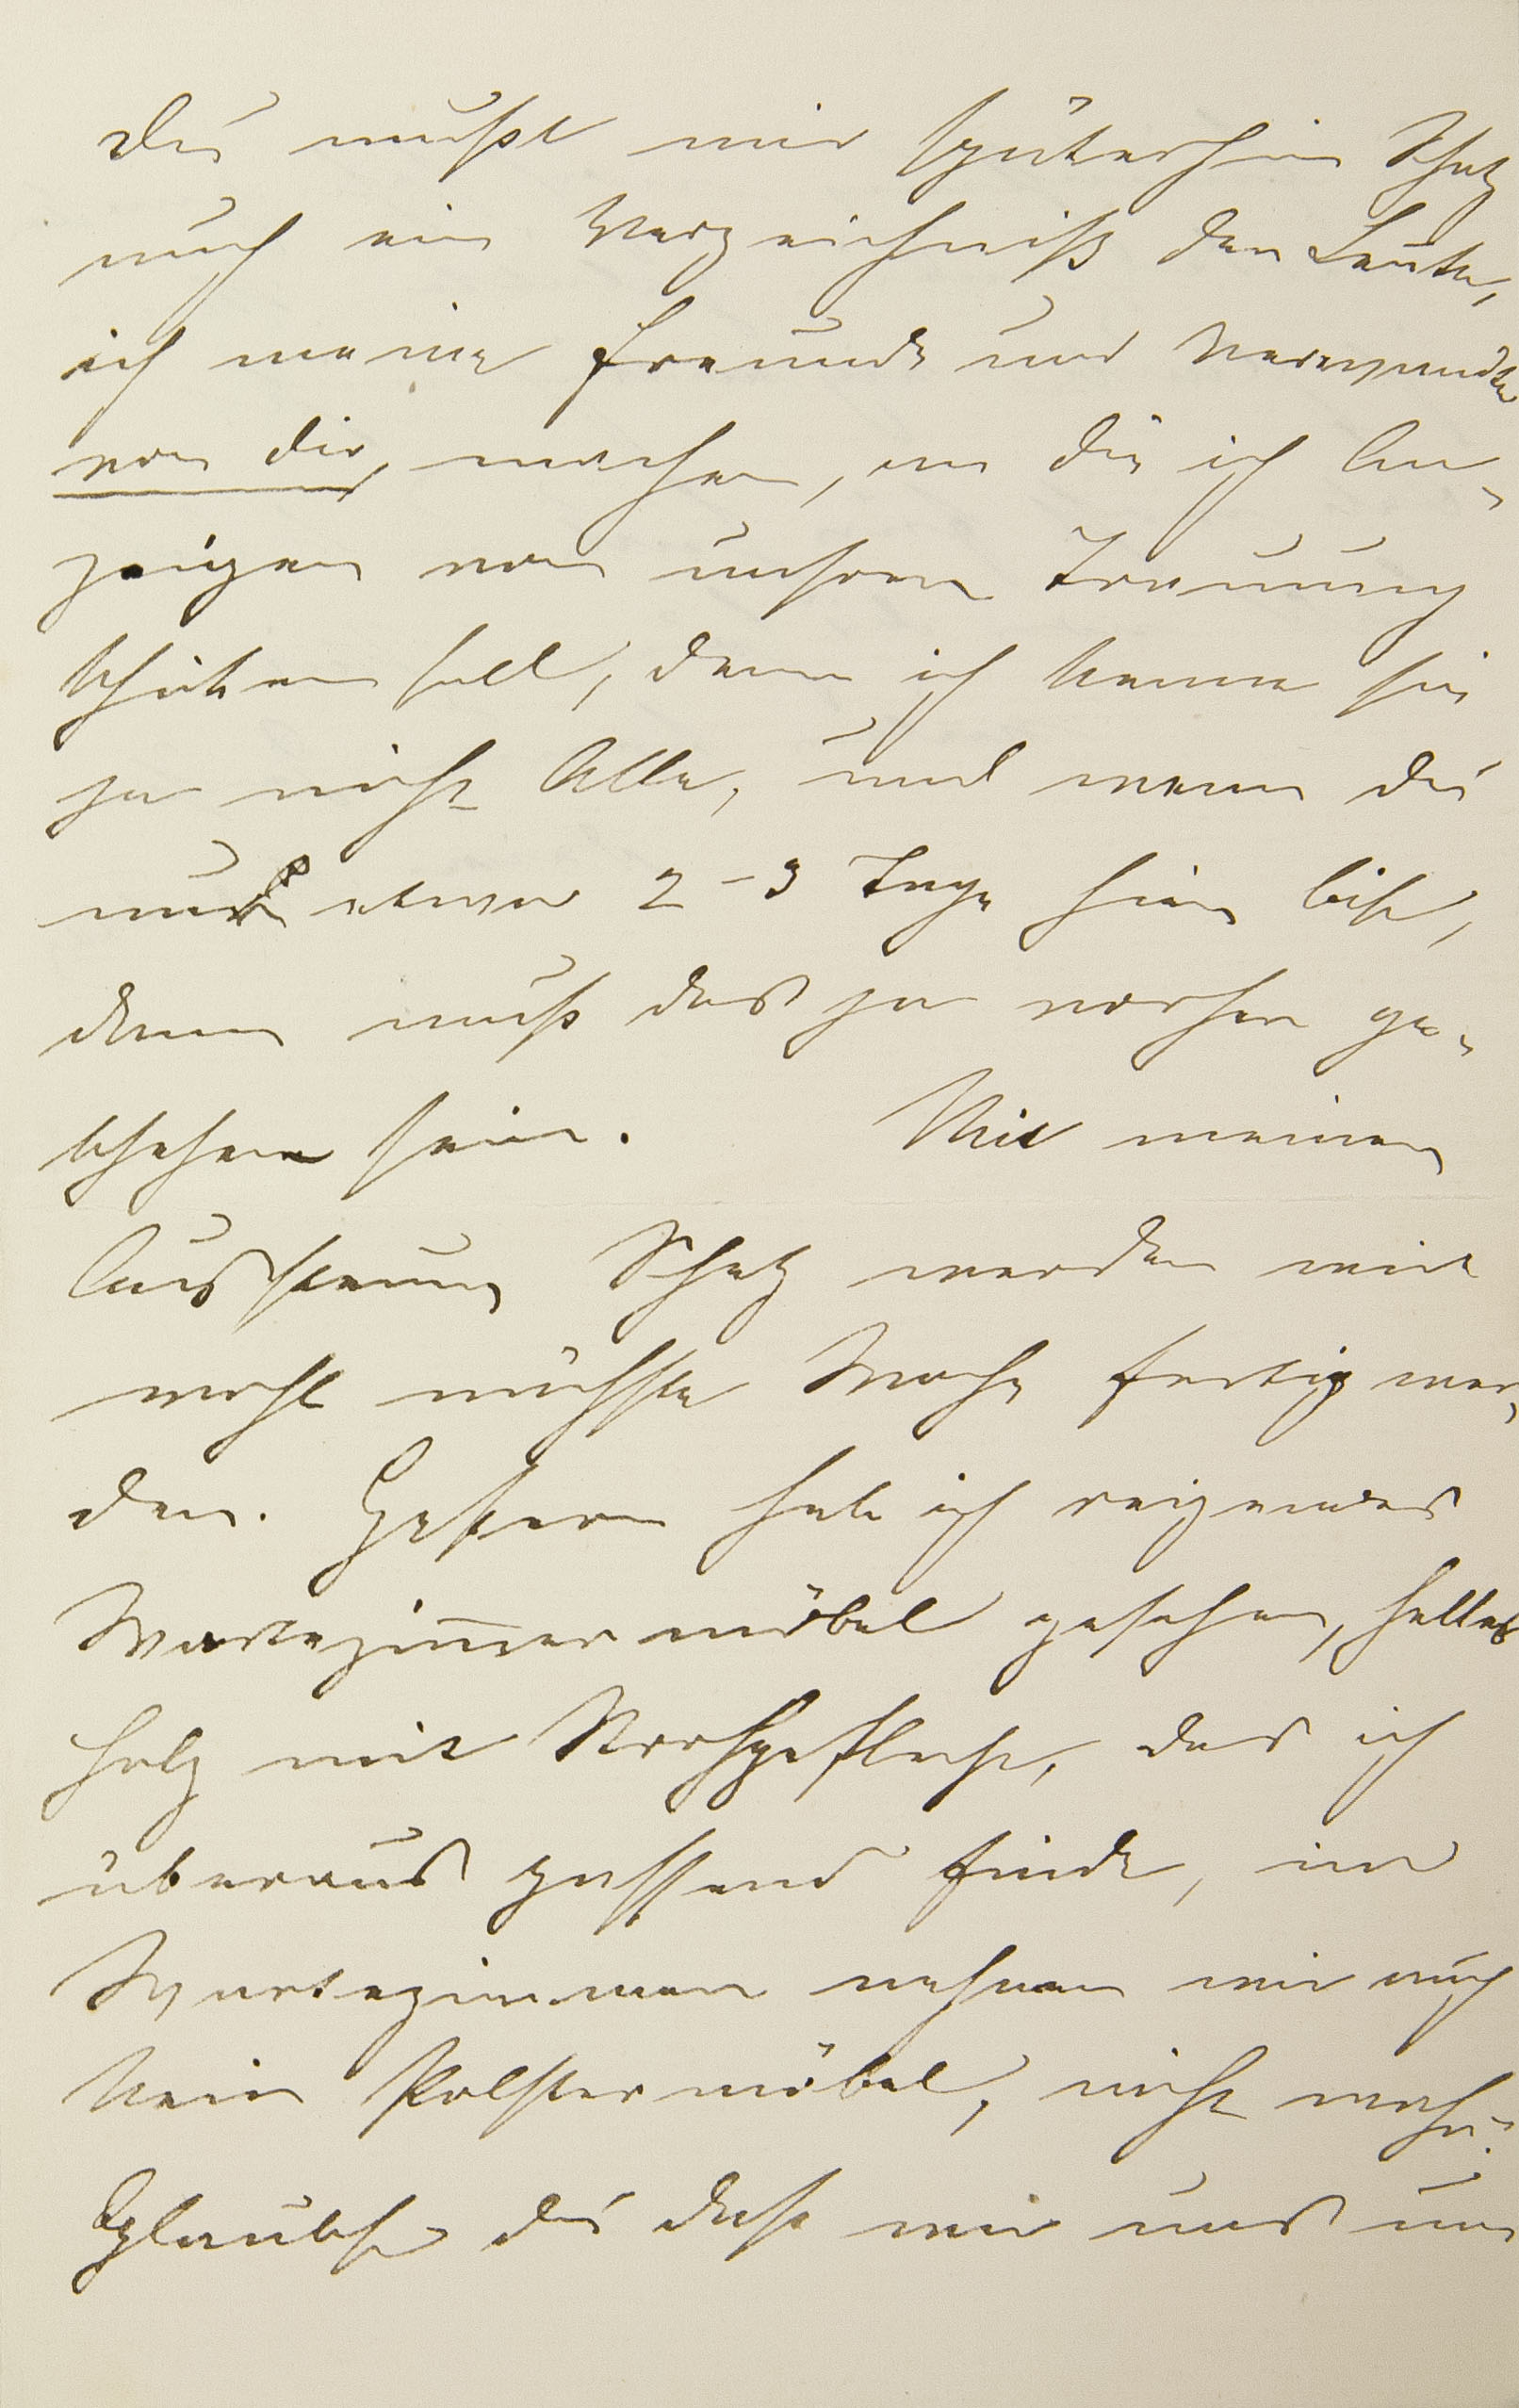 Du mußt mir späterhin Schatz
noch ein Verzeichniß der Leute,
ich meine Freunde und Verwandte
von dir, machen, an die ich An-
zeigen von unserer Trauung
schicken soll, denn ich kenne sie
ja nicht Alle, und wenn du
nur etwa 2-3 Tage hier bist,
dann muß das ja vorher ge-
schehen sein. Mit meiner
Aussteuer Schatz werden wir
wohl nächste Woche fertig wer-
den. Gestern habe ich reizendes
Wartezimmermöbel gesehen, helles
Holz mit Strohgeflecht, das ich
überaus passend finde, im
Wartezimmer nehmen wir auch
kein Polstermöbel, nicht wahr?
Glaubst du daß wir uns um